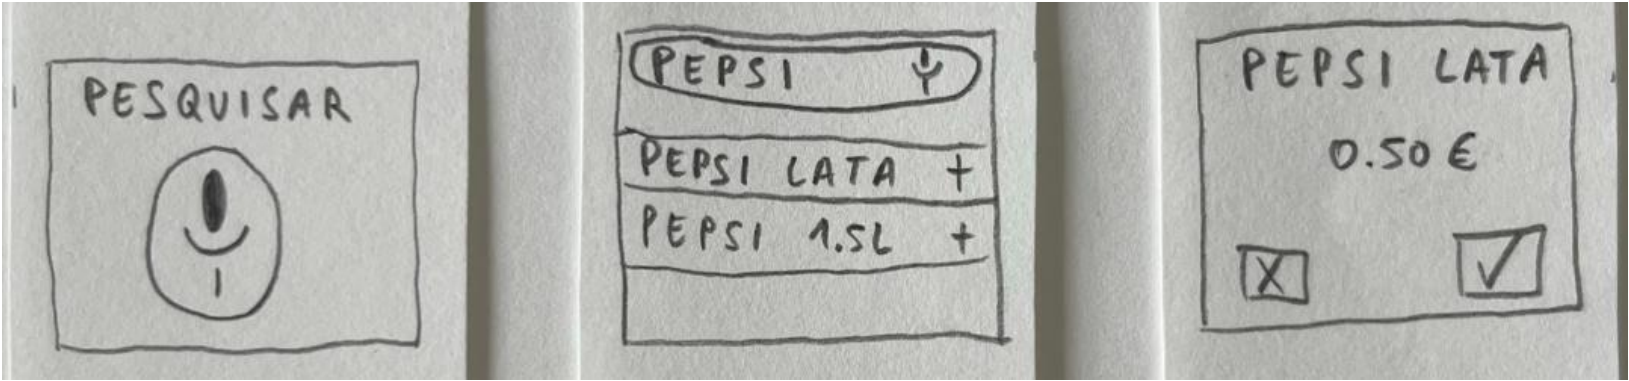 PESQUISAR
PEPSI
PEPSI LATA +
PEPSI 1.5L +
PEPSI LATA
0.50 €
X ✓